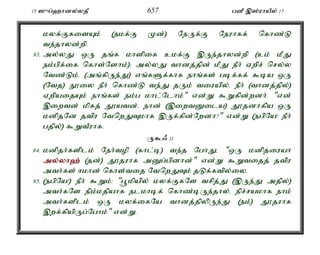 15 ஸுப்ஹானல்லதீ 657 பனீ இஸ்ராயீல் 17
மலக்குகளையும் (நமக்கு முன்) நேருக்கு நேராகக் கொண்டு
வந்தாலன்றி.
93. அல்லது ஒரு தங்க மாளிகை உமக்கு இருந்தாலன்றி (உம் மீது
நம்பிக்கை கொள்ளோம்); அல்லது வானத்தின் மீது நீர் ஏறிச் செல்ல
வேண்டும். (அங்கிருந்து) எங்களுக்காக நாங்கள் படிக்கக் கூடிய ஒரு
(வேத) நூலை நீர் கொண்டு வந்து தரும் வரையில், நீர் (வானத்தில்)
ஏறியதையும் நாங்கள் நம்ப மாட்டோம்" என்று கூறுகின்றனர். "என்
இறைவன் மிகத் தூயவன். நான் (இறைவனுடைய) தூதனாகிய ஒரு
மனிதனே தவிர வேறெதுவுமாக இருக்கின்றேனா!" என்று (நபியே! நீர்
பதில்) கூறுவீராக.
ருகூஃ 11
94. மனிதர்களிடம் நேர்வழி (காட்டி) வந்த போது, "ஒரு மனிதரையா
அல்லாஹ் (தன்) தூதராக அனுப்பினான்" என்று கூறுவதைத் தவிர
அவர்கள் ஈமான் கொள்வதை வேறெதுவும் தடுக்கவில்லை.
95. (நபியே!) நீர் கூறும்: "பூமியில் மலக்குகளே வசித்து (இருந்து அதில்)
அவர்களே நிம்மதியாக நடமாடிக் கொண்டிருந்தால், நிச்சயமாக நாம்
அவர்களிடம் ஒரு மலக்கையே வானத்திலிருந்து (நம்) தூதராக
இறக்கியிருப்போம்" என்று.